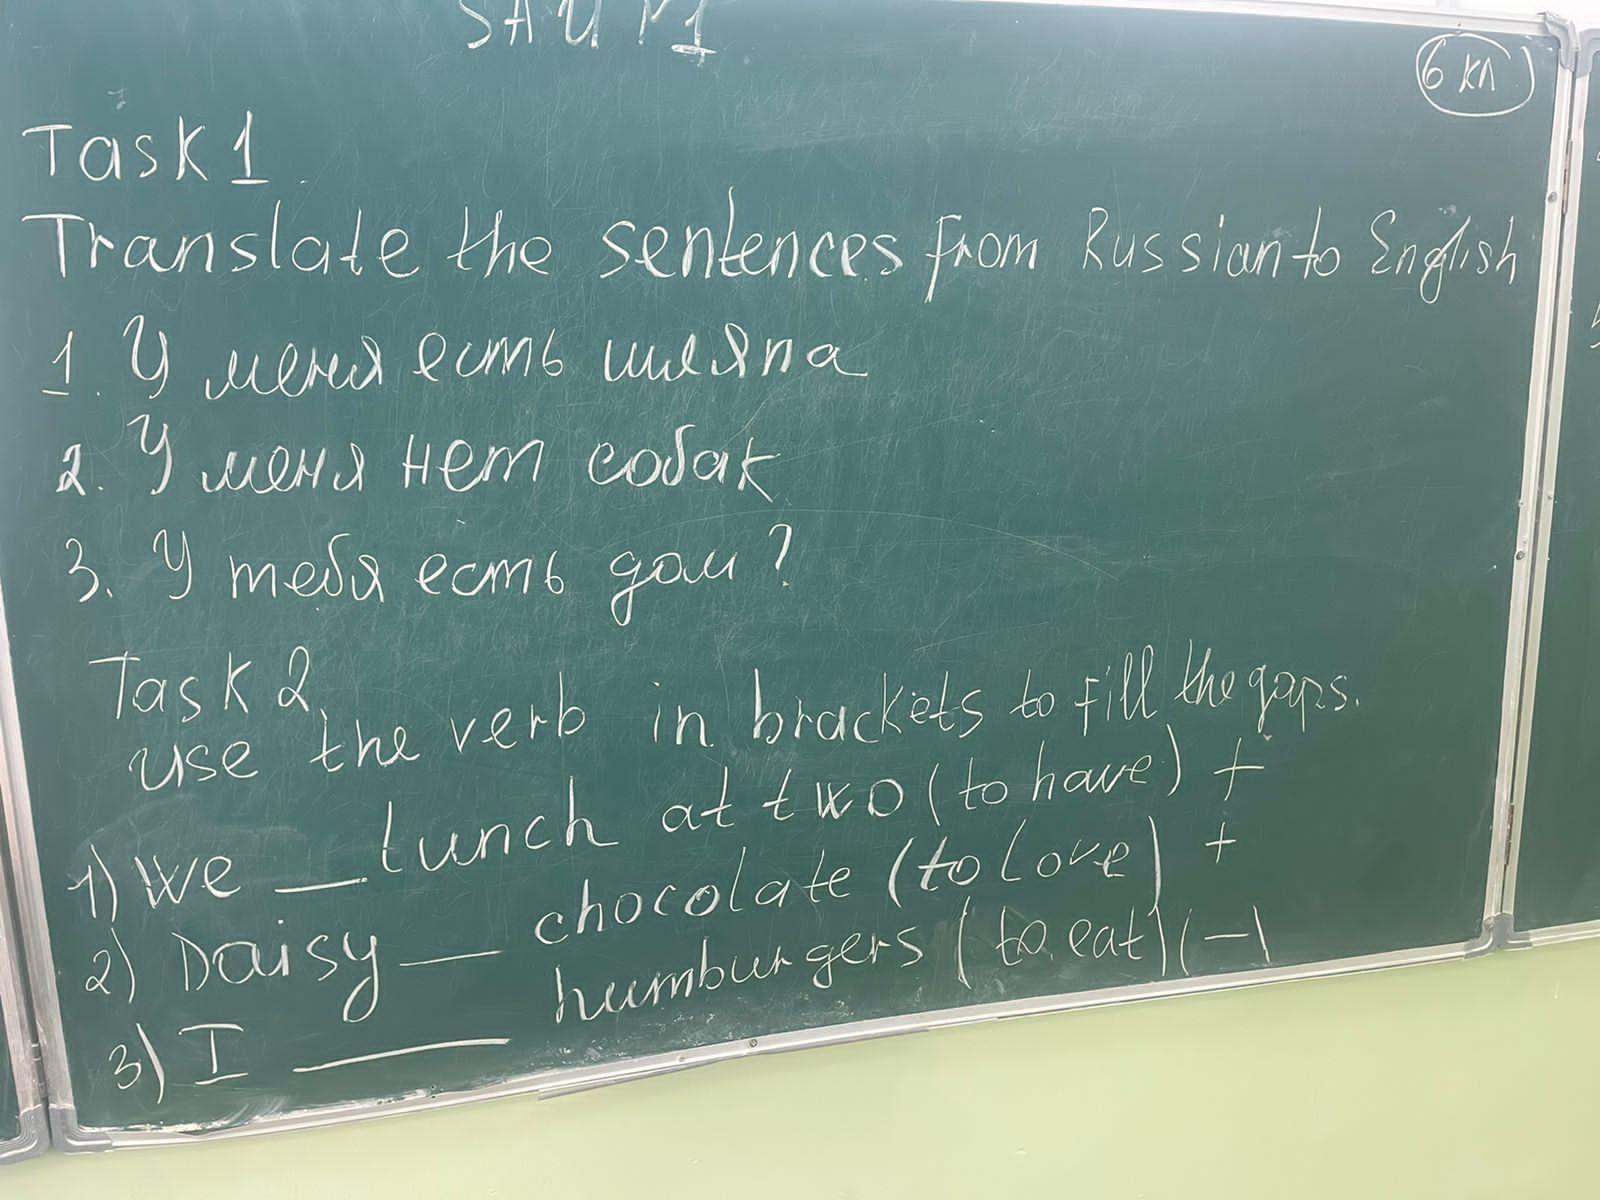 6 кл
Task 1
Translate the sentences from Russian to English
1. У меня есть шляпа
2. У меня нет собак
3. У тебя есть дом?
Task 2
use the verb in brackets to fill the gaps.
1) We __ lunch at two (to have) +
2) Daisy __ chocolate (to love) +
3) I ____ humburgers (to eat) (-)